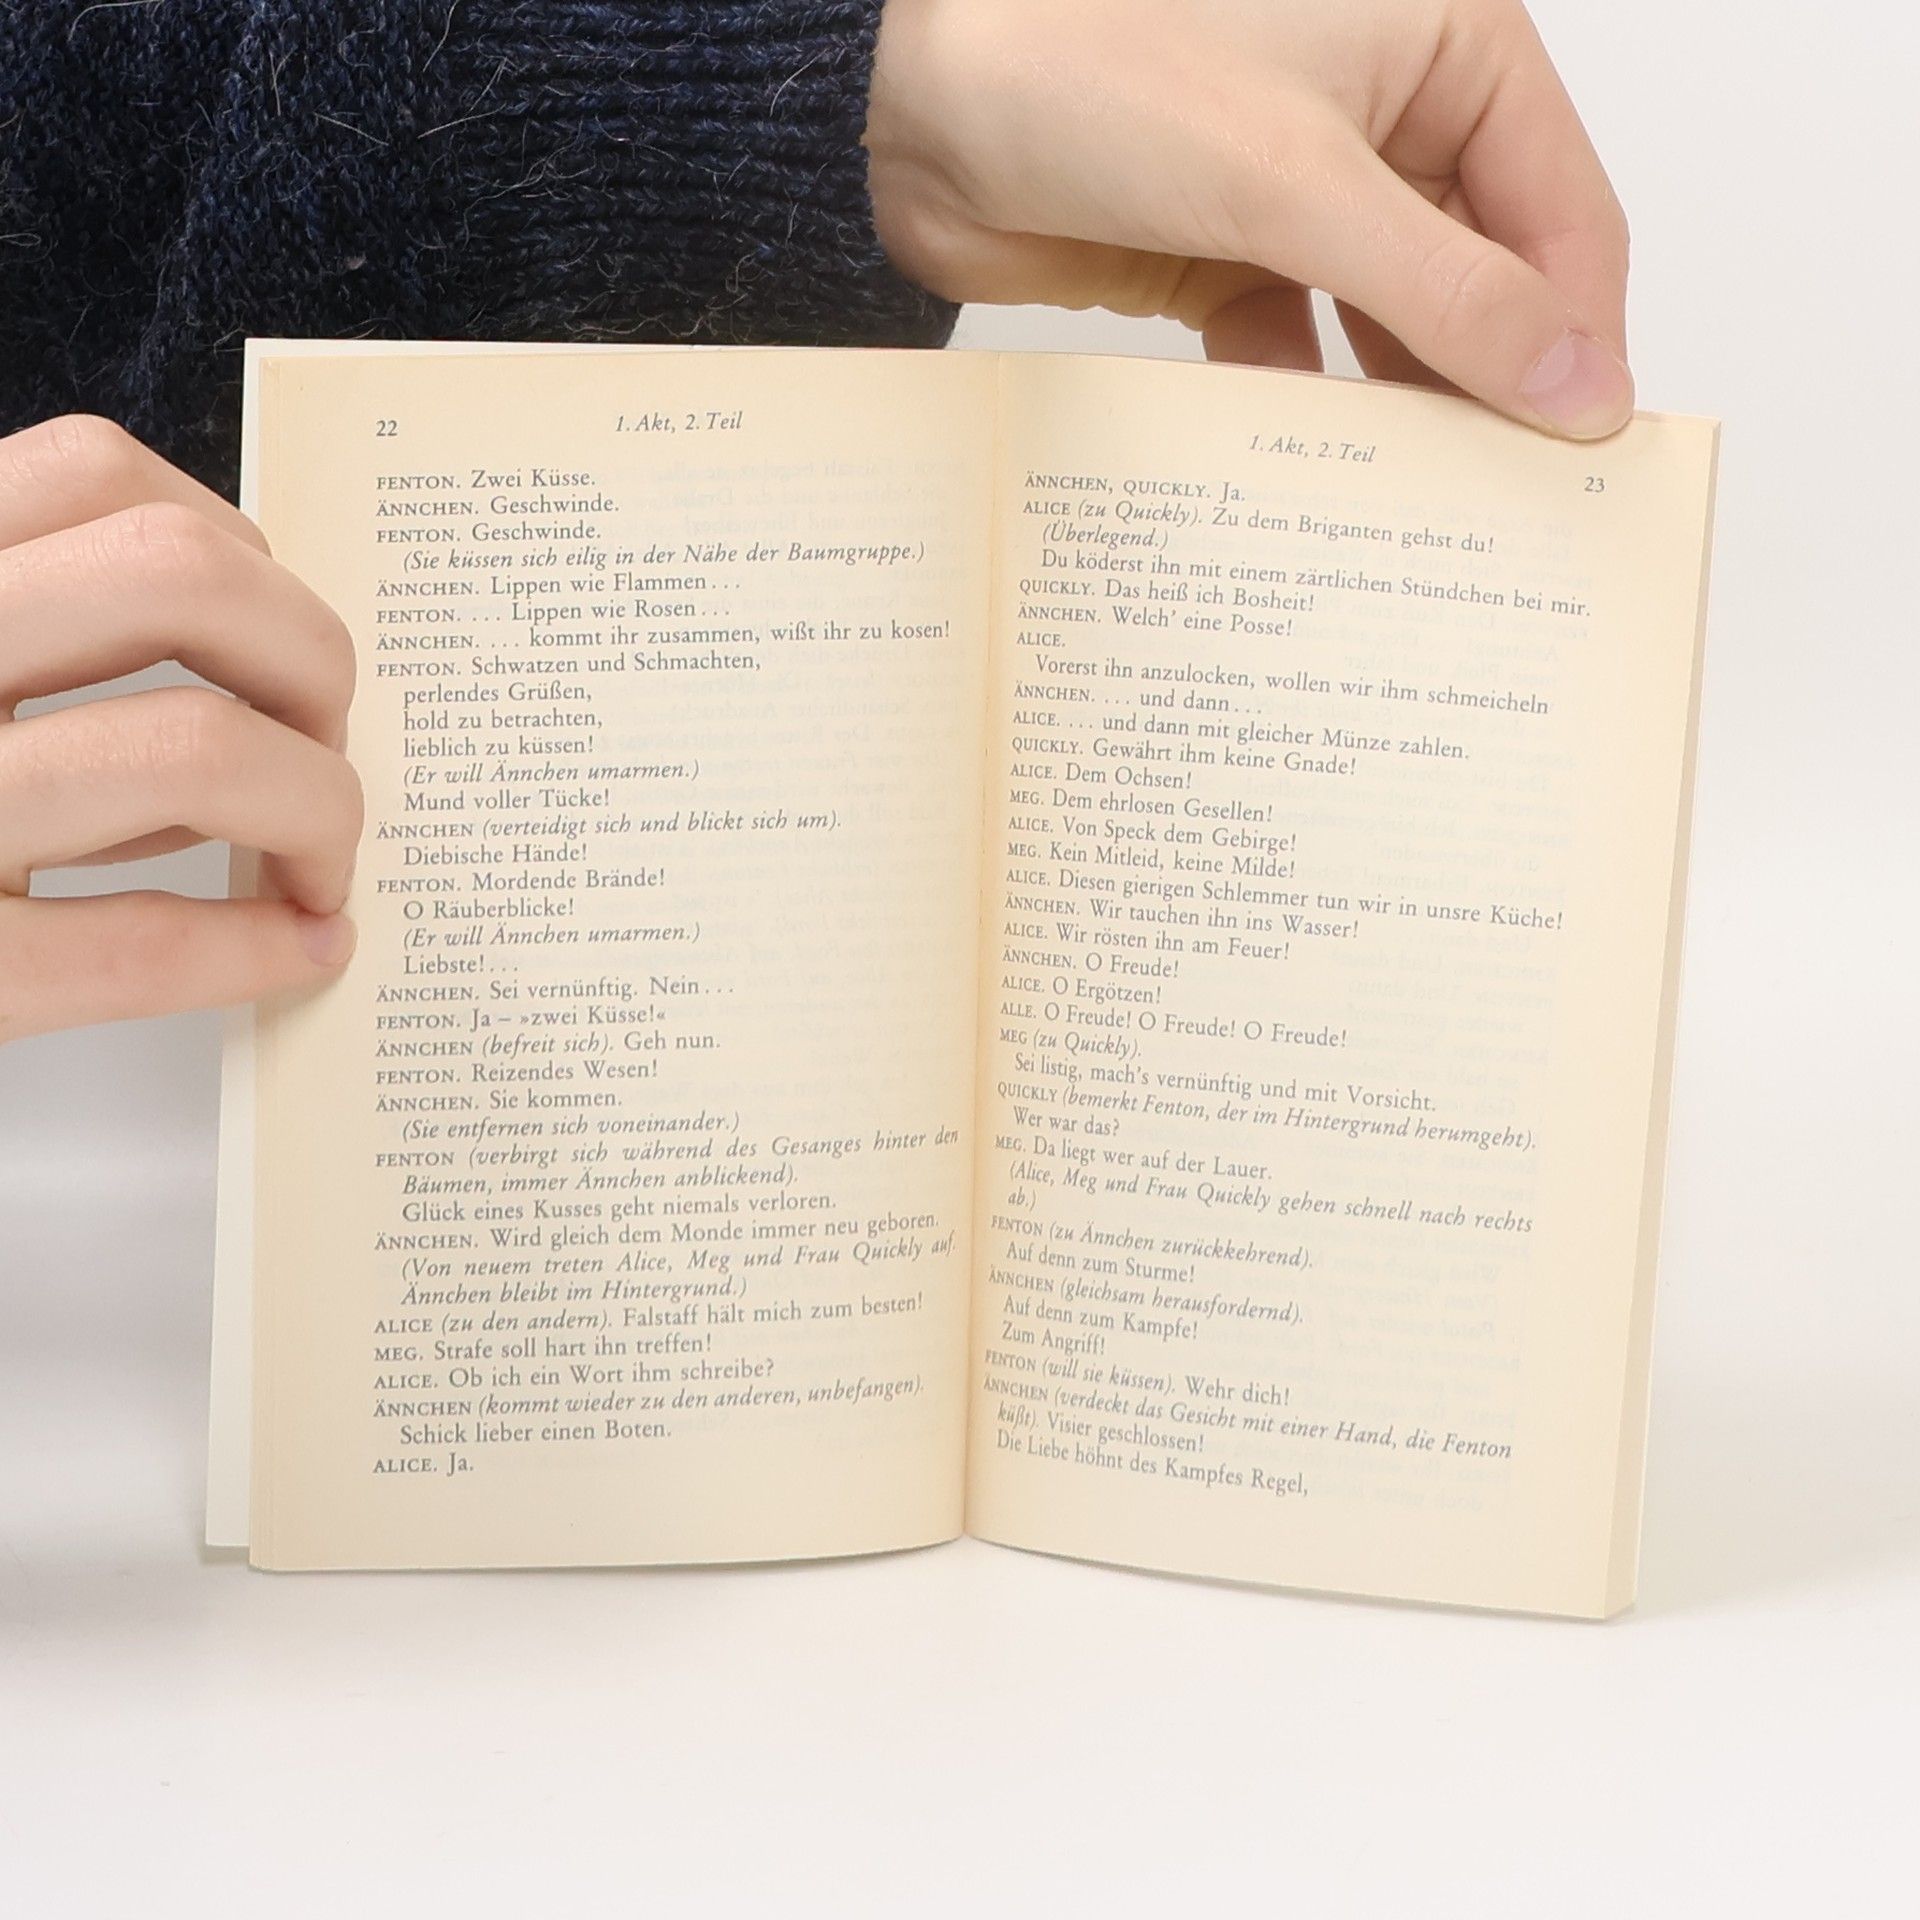 22
1. Akt, 2. Teil
FENTON. Zwei Küsse.
ÄNNCHEN. Geschwinde.
FENTON. Geschwinde.
(Sie küssen sich eilig in der Nähe der Baumgruppe.)
ÄNNCHEN. Lippen wie Flammen...
FENTON. ... Lippen wie Rosen...
ÄNNCHEN. ... kommt ihr zusammen, wißt ihr zu kosen!
FENTON. Schwatzen und Schmachten,
perlendes Grüßen,
hold zu betrachten,
lieblich zu küssen!
(Er will Ännchen umarmen.)
Mund voller Tücke!
ÄNNCHEN (verteidigt sich und blickt sich um).
Diebische Hände!
FENTON. Mordende Brände!
O Räuberblicke!
(Er will Ännchen umarmen.)
Liebste!...
ÄNNCHEN. Sei vernünftig. Nein...
FENTON. Ja – »zwei Küsse!«
ÄNNCHEN (befreit sich). Geh nun.
FENTON. Reizendes Wesen!
ÄNNCHEN. Sie kommen.
(Sie entfernen sich voneinander.)
FENTON (verbirgt sich während des Gesanges hinter den
Bäumen, immer Ännchen anblickend).
Glück eines Kusses geht niemals verloren.
ÄNNCHEN. Wird gleich dem Monde immer neu geboren.
(Von neuem treten Alice, Meg und Frau Quickly auf.
Ännchen bleibt im Hintergrund.)
ALICE (zu den andern). Falstaff hält mich zum besten!
MEG. Strafe soll hart ihn treffen!
ALICE. Ob ich ein Wort ihm schreibe?
ÄNNCHEN (kommt wieder zu den anderen, unbefangen).
Schick lieber einen Boten.
ALICE. Ja.
1. Akt, 2. Teil
23
ÄNNCHEN, QUICKLY. Ja.
ALICE (zu Quickly). Zu dem Briganten gehst du!
(Überlegend.)
Du köderst ihn mit einem zärtlichen Stündchen bei mir.
QUICKLY. Das heiß ich Bosheit!
ÄNNCHEN. Welch' eine Posse!
ALICE.
Vorerst ihn anzulocken, wollen wir ihm schmeicheln
ÄNNCHEN. ... und dann...
ALICE. ... und dann mit gleicher Münze zahlen.
QUICKLY. Gewährt ihm keine Gnade!
ALICE. Dem Ochsen!
MEG. Dem ehrlosen Gesellen!
ALICE. Von Speck dem Gebirge!
MEG. Kein Mitleid, keine Milde!
ALICE. Diesen gierigen Schlemmer tun wir in unsre Küche!
ÄNNCHEN. Wir tauchen ihn ins Wasser!
ALICE. Wir rösten ihn am Feuer!
ÄNNCHEN. O Freude!
ALICE. O Ergötzen!
ALLE. O Freude! O Freude! O Freude!
MEG (zu Quickly).
Sei listig, mach's vernünftig und mit Vorsicht.
QUICKLY (bemerkt Fenton, der im Hintergrund herumgeht).
Wer war das?
MEG. Da liegt wer auf der Lauer.
(Alice, Meg und Frau Quickly gehen schnell nach rechts
ab.)
FENTON (zu Ännchen zurückkehrend).
Auf denn zum Sturme!
ÄNNCHEN (gleichsam herausfordernd).
Auf denn zum Kampfe!
Zum Angriff!
FENTON (will sie küssen). Wehr dich!
ÄNNCHEN (verdeckt das Gesicht mit einer Hand, die Fenton
küßt). Visier geschlossen!
Die Liebe höhnt des Kampfes Regel,